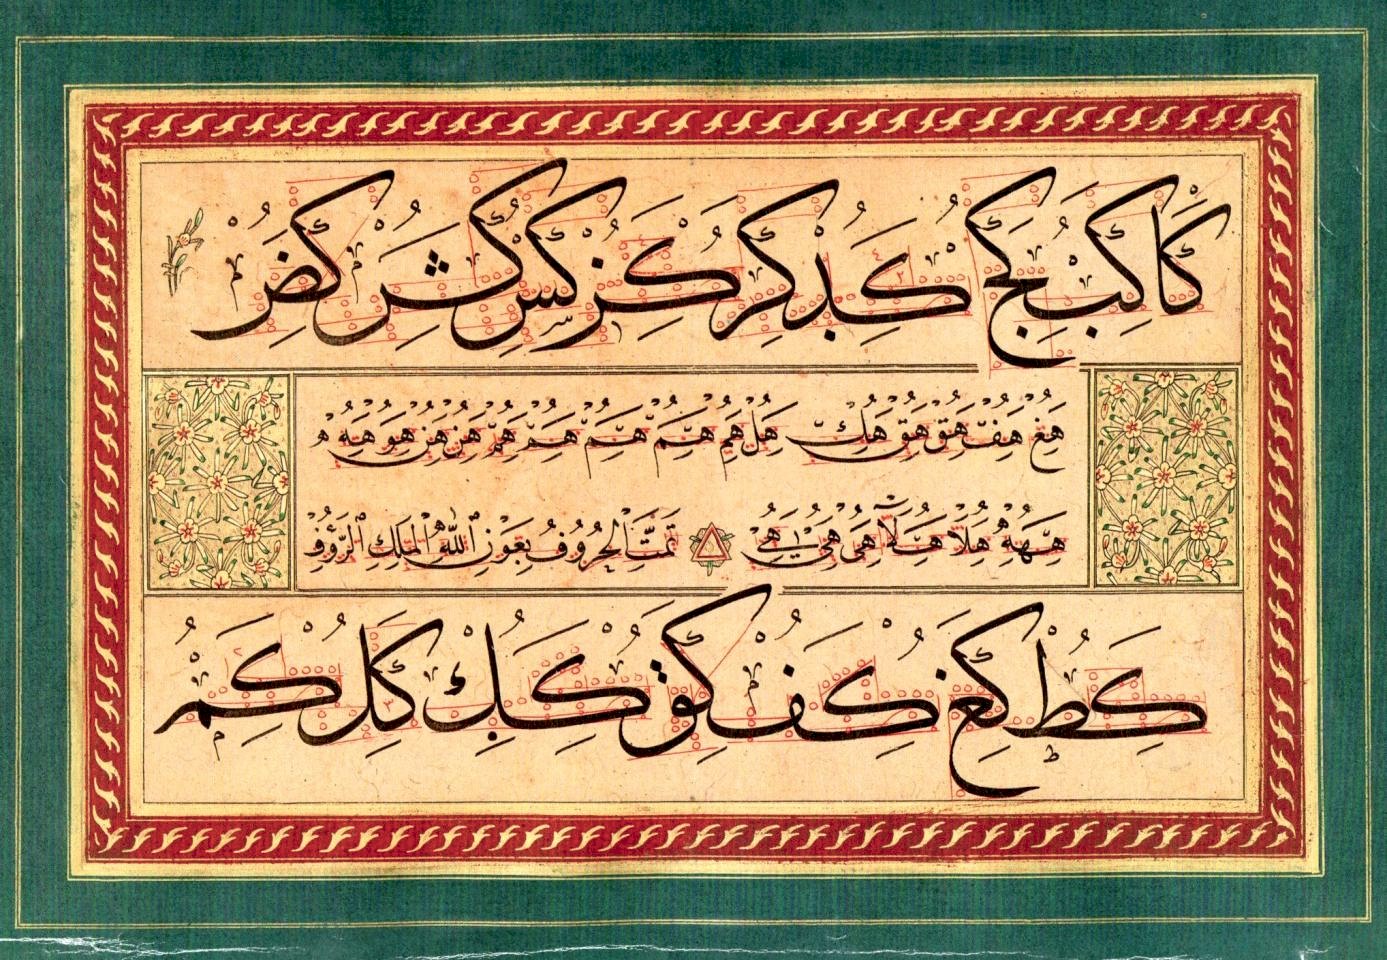 كا كب كج كد كر كز كس كش كض
هغ هف هق هق هك هل هم هم هم هم هم هم هن هن هو هه
هه هلا هلا هى هى هى تمت الحروف بعون الله الملك الرؤف
كط كغ كف كق كك كل كم